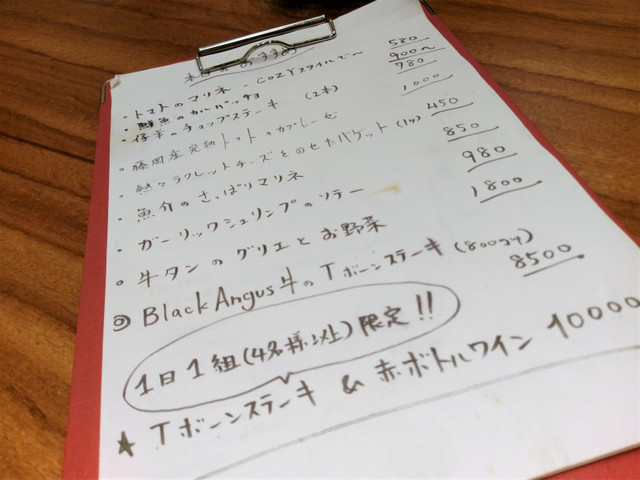 本日のおすすめ
・トマトのマリネ - COZYスタイルで～ 580
・鮮魚のカルパッチョ 900～
・仔羊のチョップステーキ (2本) 780
・藤岡産完熟トマトのカプレーゼ 1000
・熱々ラクレットチーズをのせたバゲット(1ケ) 450
・魚介のさっぱりマリネ 850
・ガーリックシュリンプのソテー 980
・牛タンのグリエとお野菜 1800
◎ Black Angus牛のTボーンステーキ(800g) 8500
1日1組(4名様以上)限定!!
★ Tボーンステーキ & 赤ボトルワイン 10000